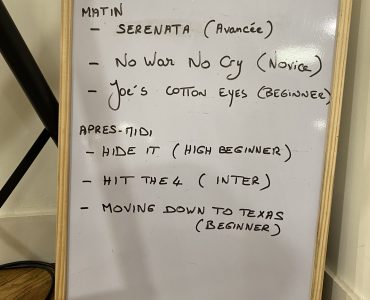 MATIN
- SERENATA (Avancée)
- No War No Cry (Novice)
- Joe's COTTON EYES (BEGINNER)
APRES-MIDI
- HIDE IT (HIGH BEGINNER)
- HIT THE 4 (INTER)
- MOVING DOWN TO TEXAS
(BEGINNER)